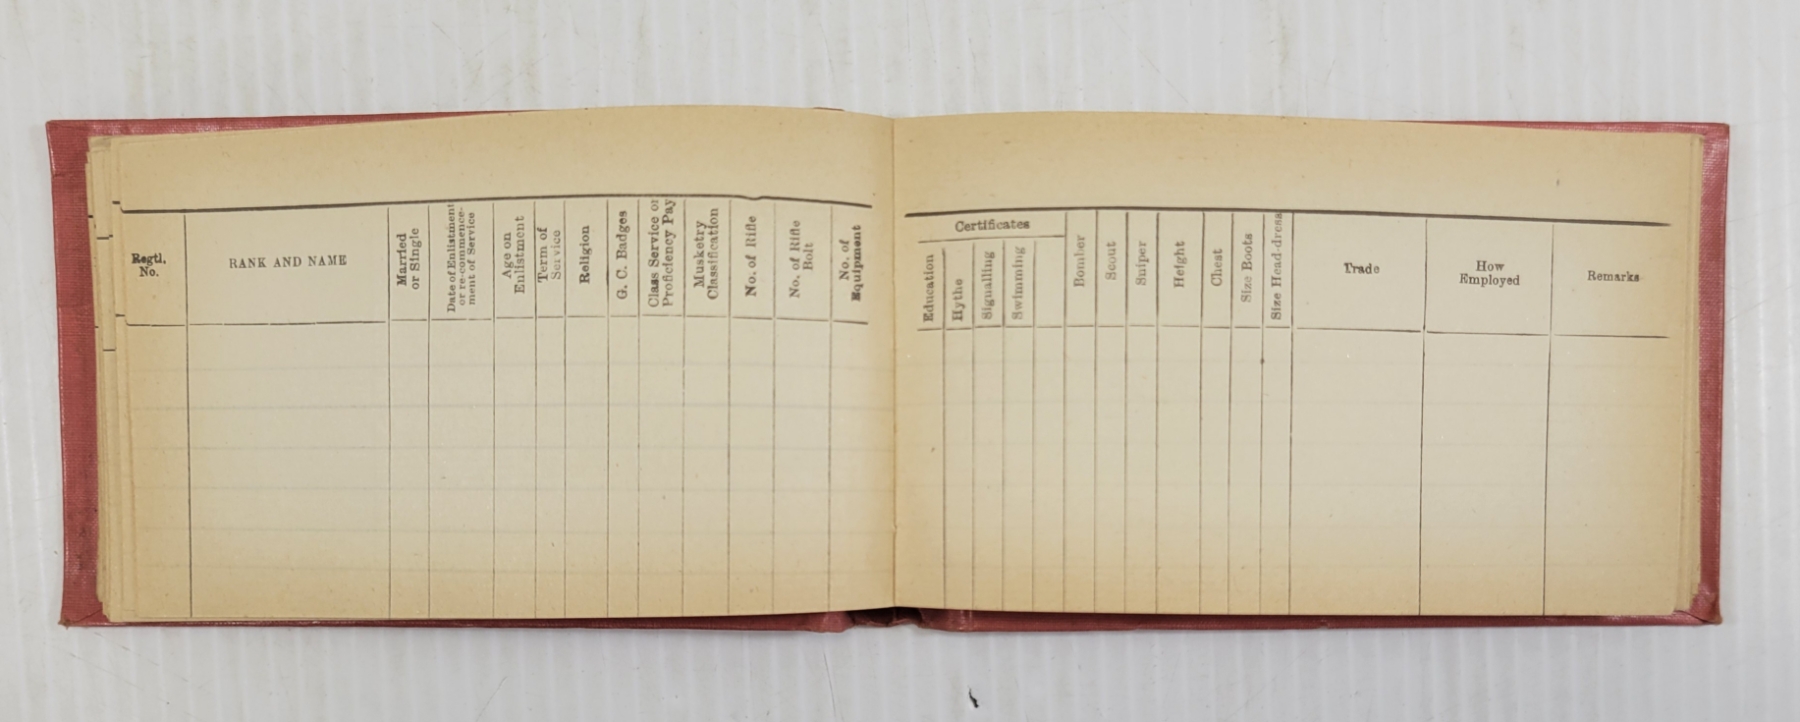 Regtl.
No.
RANK AND NAME
Married
or Single
Date of Enlistment
or re-commence-
ment of Service
Age on
Enlistment
Term of
Service
Religion
G. C. Badges
Class Service or
Proficiency Pay
Musketry
Classification
No. of Rifle
No. of Rifle
Bolt
No. of
Equipment
Certificates
Education
Hythe
Signalling
Swimming
Bomber
Scout
Sniper
Height
Chest
Size Boots
Size Head-dress
Trade
How
Employed
Remarks